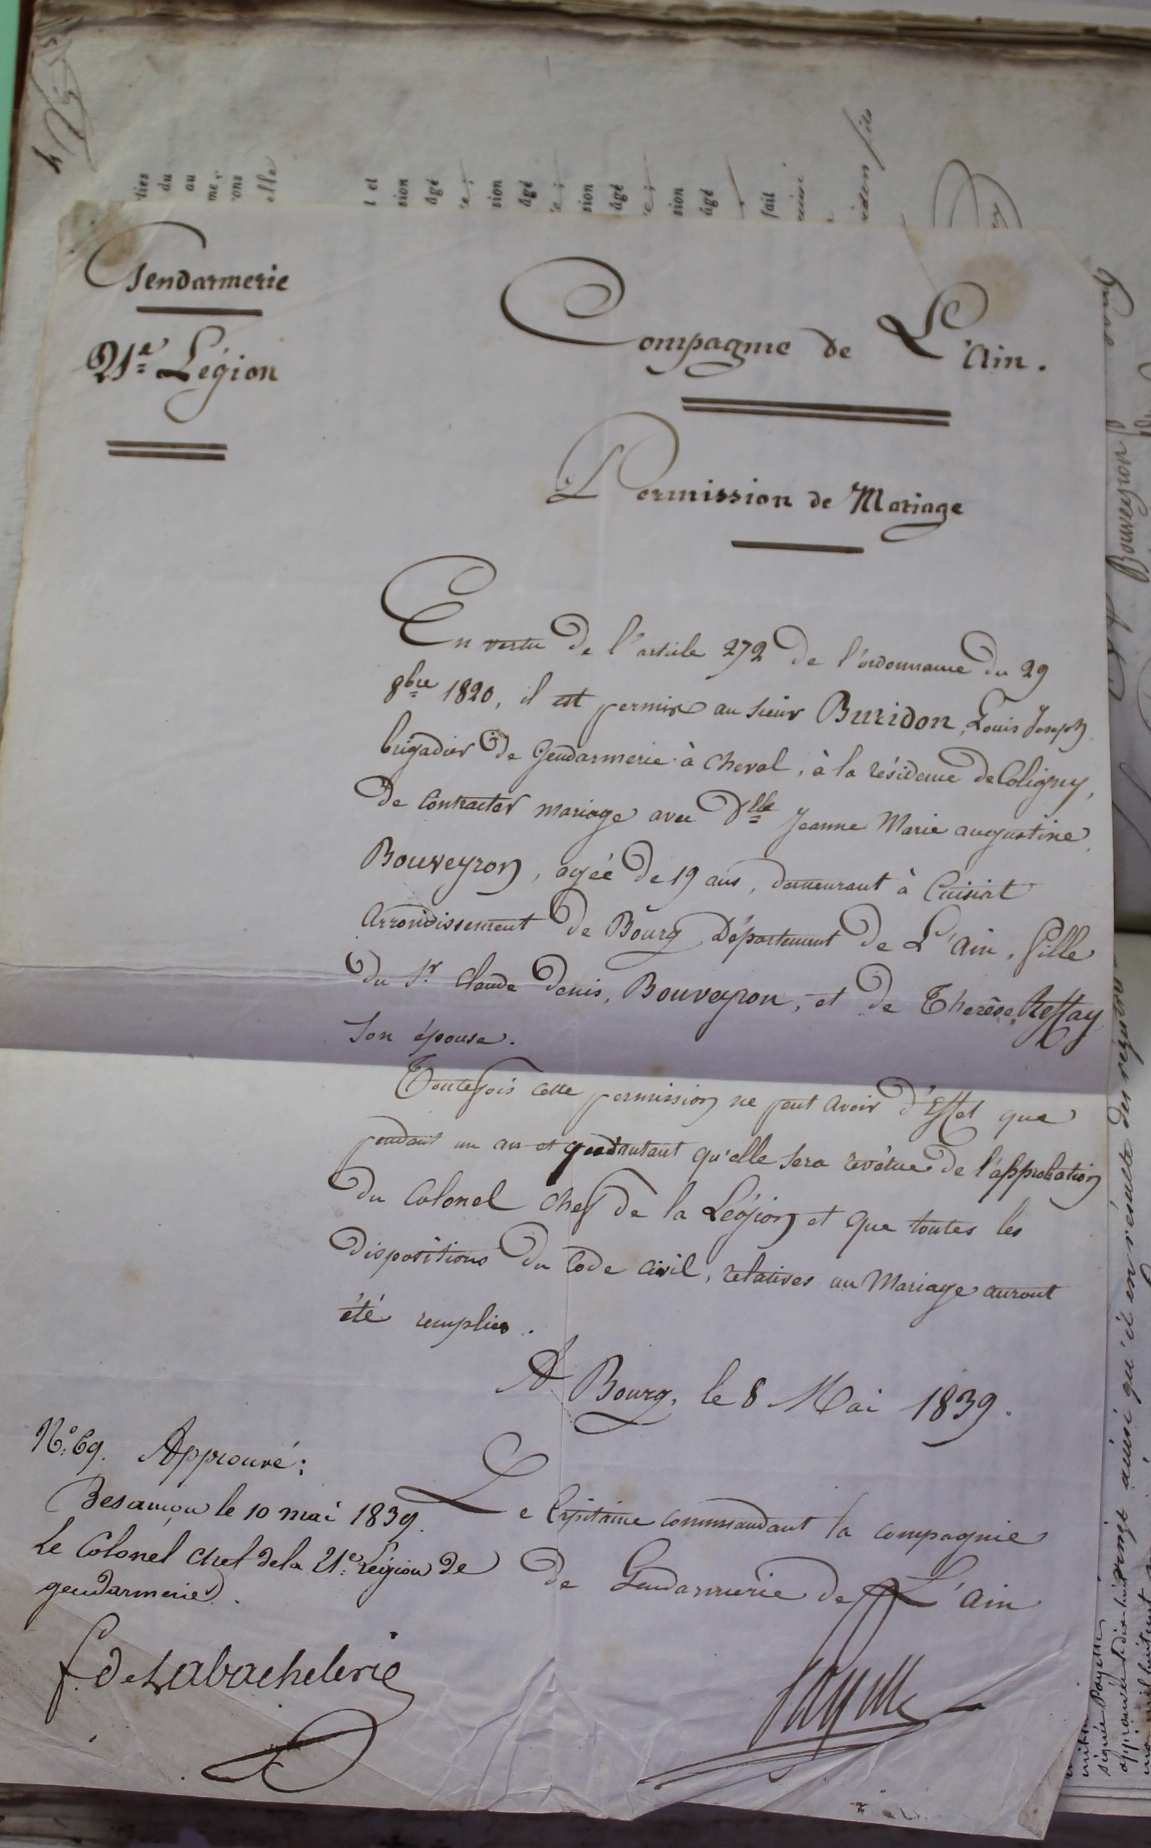 Gendarmerie
21e Légion
Compagnie de L'Ain.
Permission de Mariage
En vertu de l'article 272 de l'ordonnance du 29
8bre 1820, il est permis au sieur Buridon, Louis Joseph
brigadier de Gendarmerie à cheval, à la résidence de Coligny,
de contracter mariage avec Dlle Jeanne Marie augustine
Bouveyron, agée de 19 ans, demeurant à Cuisiat
Arrondissement de Bourg Département de L'Ain, fille
du Sr. Claude denis, Bouveyron, et de Therèse
son épouse.
Toutefois cette permission ne peut avoir d'Effet que
pendant un an et qu'autant qu'elle sera revêtue de l'approbation
du Colonel Chef de la Légion et que toutes les
dispositions du Code civil, relatives au Mariage auront
été remplies.
A Bourg, le 8 Mai 1839.
Le Capitaine commandant la compagnie
de Gendarmerie de L'ain
Payette
No. 69. Approuvé:
Besançon le 10 mai 1839.
Le Colonel chef de la 21e. Légion de
gendarmerie.
f. de Labachelerie
Bouveyron
ainsi qu'il en résulte des registres
signé Payette
lies
du
au
ons
elle
l et
sion
âgé
sion
âgé
sion
âgé
sion
âgé
fait